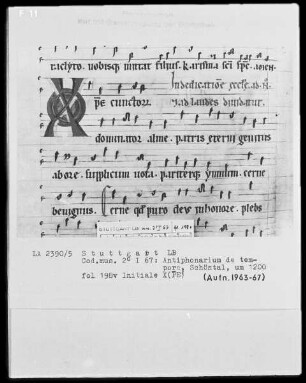 raclyto. uobisq; mittat filius. karisma sci spc.
In dedicatione
ad laudes
XPE cunctorum
dominator alme. patris eterni genitus
abore. supplicum uota. pariterq; ymnum. cerne
benignus. Cerne qs puro deus in honore. plebs
LA 2390/5 Stuttgart LB
Cod.mus. 2° I 67: Antiphonarium de tem-
pore, Schöntal, um 1200
fol 198v Initiale X(PE) (Aufn.1963-67)